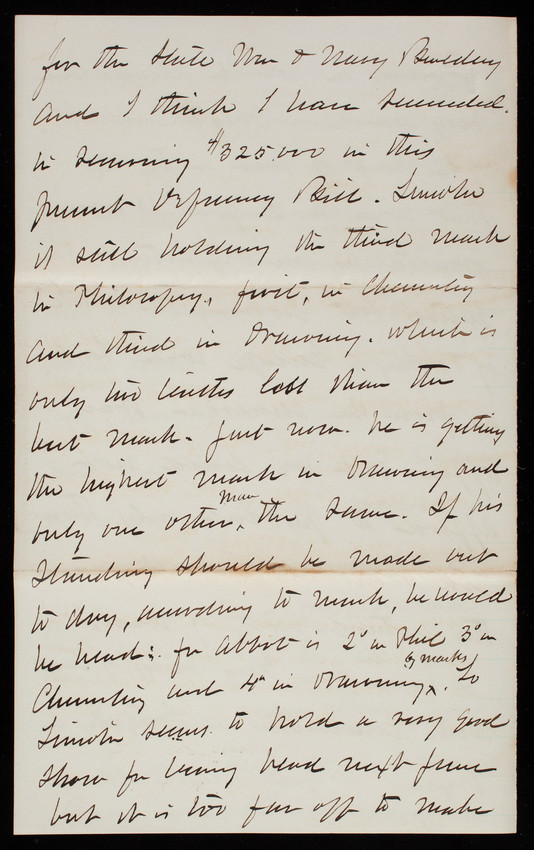 for the State War & Navy Building
And I think I have succeeded.
in securing $325.000 in this
present Deficiency Bill. Lincoln
is still holding the third mark
in Philosophy, first, in Chemistry
and third in Drawing. which is
only two tenths less than the
best mark. Just now. he is getting
the highest mark in Drawing and
only one other man the same. If his
Standing should be made out
to day, according to mark, he would
be head: for Abbot is 2d in Phil 3d in
Chemistry and 4th in Drawing by marks. So
Lincoln seems to hold a very good
show for being head next June
but it is too far off to make